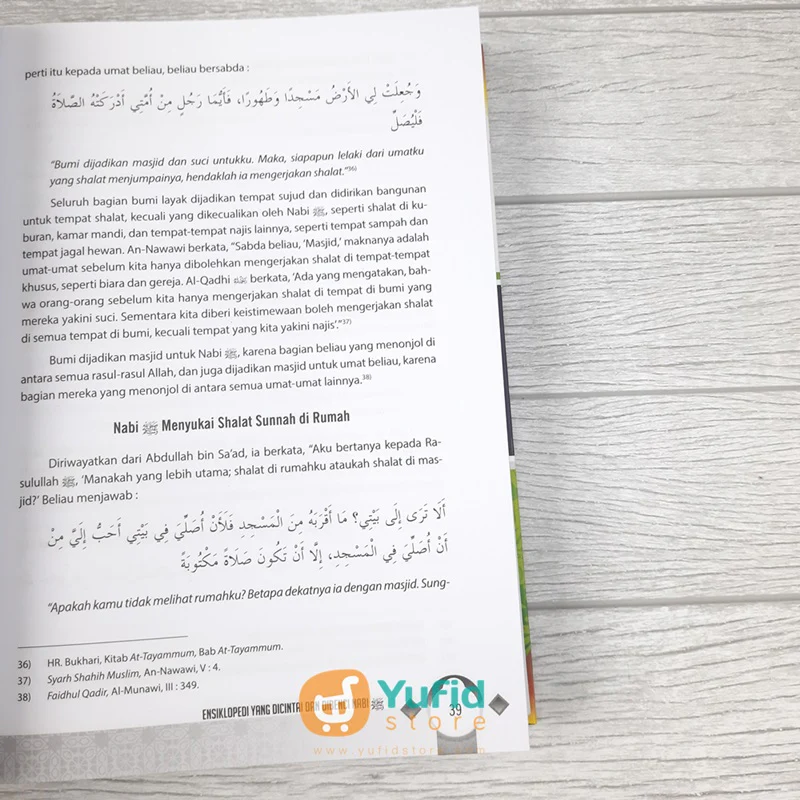 perti itu kepada umat beliau, beliau bersabda :
وَجُعِلَتْ لِي الأَرْضُ مَسْجِدًا وَطَهُورًا، فَأَيُّمَا رَجُلٍ مِنْ أُمَّتِي أَدْرَكَتْهُ الصَّلَاةُ
فَلْيُصَلِّ
"Bumi dijadikan masjid dan suci untukku. Maka, siapapun lelaki dari umatku
yang shalat menjumpainya, hendaklah ia mengerjakan shalat."36)
Seluruh bagian bumi layak dijadikan tempat sujud dan didirikan bangunan
untuk tempat shalat, kecuali yang dikecualikan oleh Nabi ﷺ, seperti shalat di ku-
buran, kamar mandi, dan tempat-tempat najis lainnya, seperti tempat sampah dan
tempat jagal hewan. An-Nawawi berkata, "Sabda beliau, 'Masjid,' maknanya adalah
umat-umat sebelum kita hanya dibolehkan mengerjakan shalat di tempat-tempat
khusus, seperti biara dan gereja. Al-Qadhi berkata, 'Ada yang mengatakan, bah-
wa orang-orang sebelum kita hanya mengerjakan shalat di tempat di bumi yang
mereka yakini suci. Sementara kita diberi keistimewaan boleh mengerjakan shalat
di semua tempat di bumi, kecuali tempat yang kita yakini najis'."37)
Bumi dijadikan masjid untuk Nabi ﷺ, karena bagian beliau yang menonjol di
antara semua rasul-rasul Allah, dan juga dijadikan masjid untuk umat beliau, karena
bagian mereka yang menonjol di antara semua umat-umat lainnya.38)
Nabi ﷺ Menyukai Shalat Sunnah di Rumah
Diriwayatkan dari Abdullah bin Sa'ad, ia berkata, "Aku bertanya kepada Ra-
sulullah ﷺ, 'Manakah yang lebih utama; shalat di rumahku ataukah shalat di mas-
jid?' Beliau menjawab :
أَلَا تَرَى إِلَى بَيْتِي؟ مَا أَقْرَبَهُ مِنَ الْمَسْجِدِ فَلَأَنْ أُصَلِّيَ فِي بَيْتِي أَحَبُّ إِلَيَّ مِنْ
أَنْ أُصَلِّيَ فِي الْمَسْجِدِ، إِلَّا أَنْ تَكُونَ صَلَاةً مَكْتُوبَةً
"Apakah kamu tidak melihat rumahku? Betapa dekatnya ia dengan masjid. Sung-
36) HR. Bukhari, Kitab At-Tayammum, Bab At-Tayammum.
37) Syarh Shahih Muslim, An-Nawawi, V : 4.
38) Faidhul Qadir, Al-Munawi, III : 349.
ENSIKLOPEDI YANG DICINTAI DAN DIBENCI NABI ﷺ 39
Yufid
store
www.yufidstore.com